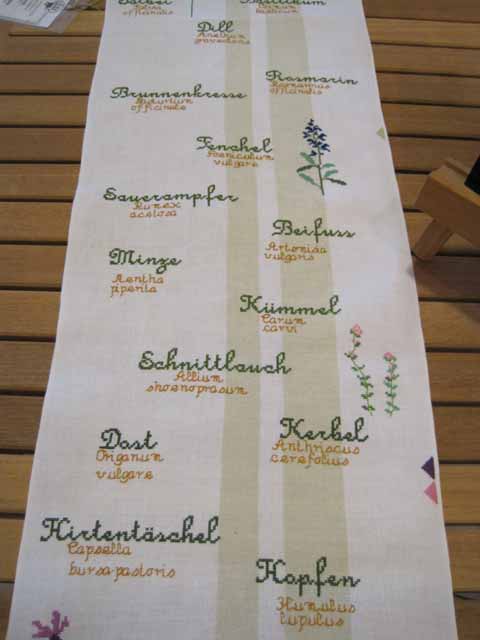 Salbei
Salvia
officinalis
Basilikum
Ocimum
basilicum
Dill
Anethum
graveolens
Rosmarin
Rosmarinus
officinalis
Brunnenkresse
Nasturtium
officinale
Fenchel
Foeniculum
vulgare
Sauerampfer
Rumex
acetosa
Beifuss
Artemisa
vulgaris
Minze
Mentha
piperita
Kümmel
Carum
carvi
Schnittlauch
Allium
shoenoprasum
Dost
Origanum
vulgare
Kerbel
Anthriscus
cerefolius
Hirtentäschel
Capsella
bursa-pastoris
Hopfen
Humulus
lupulus